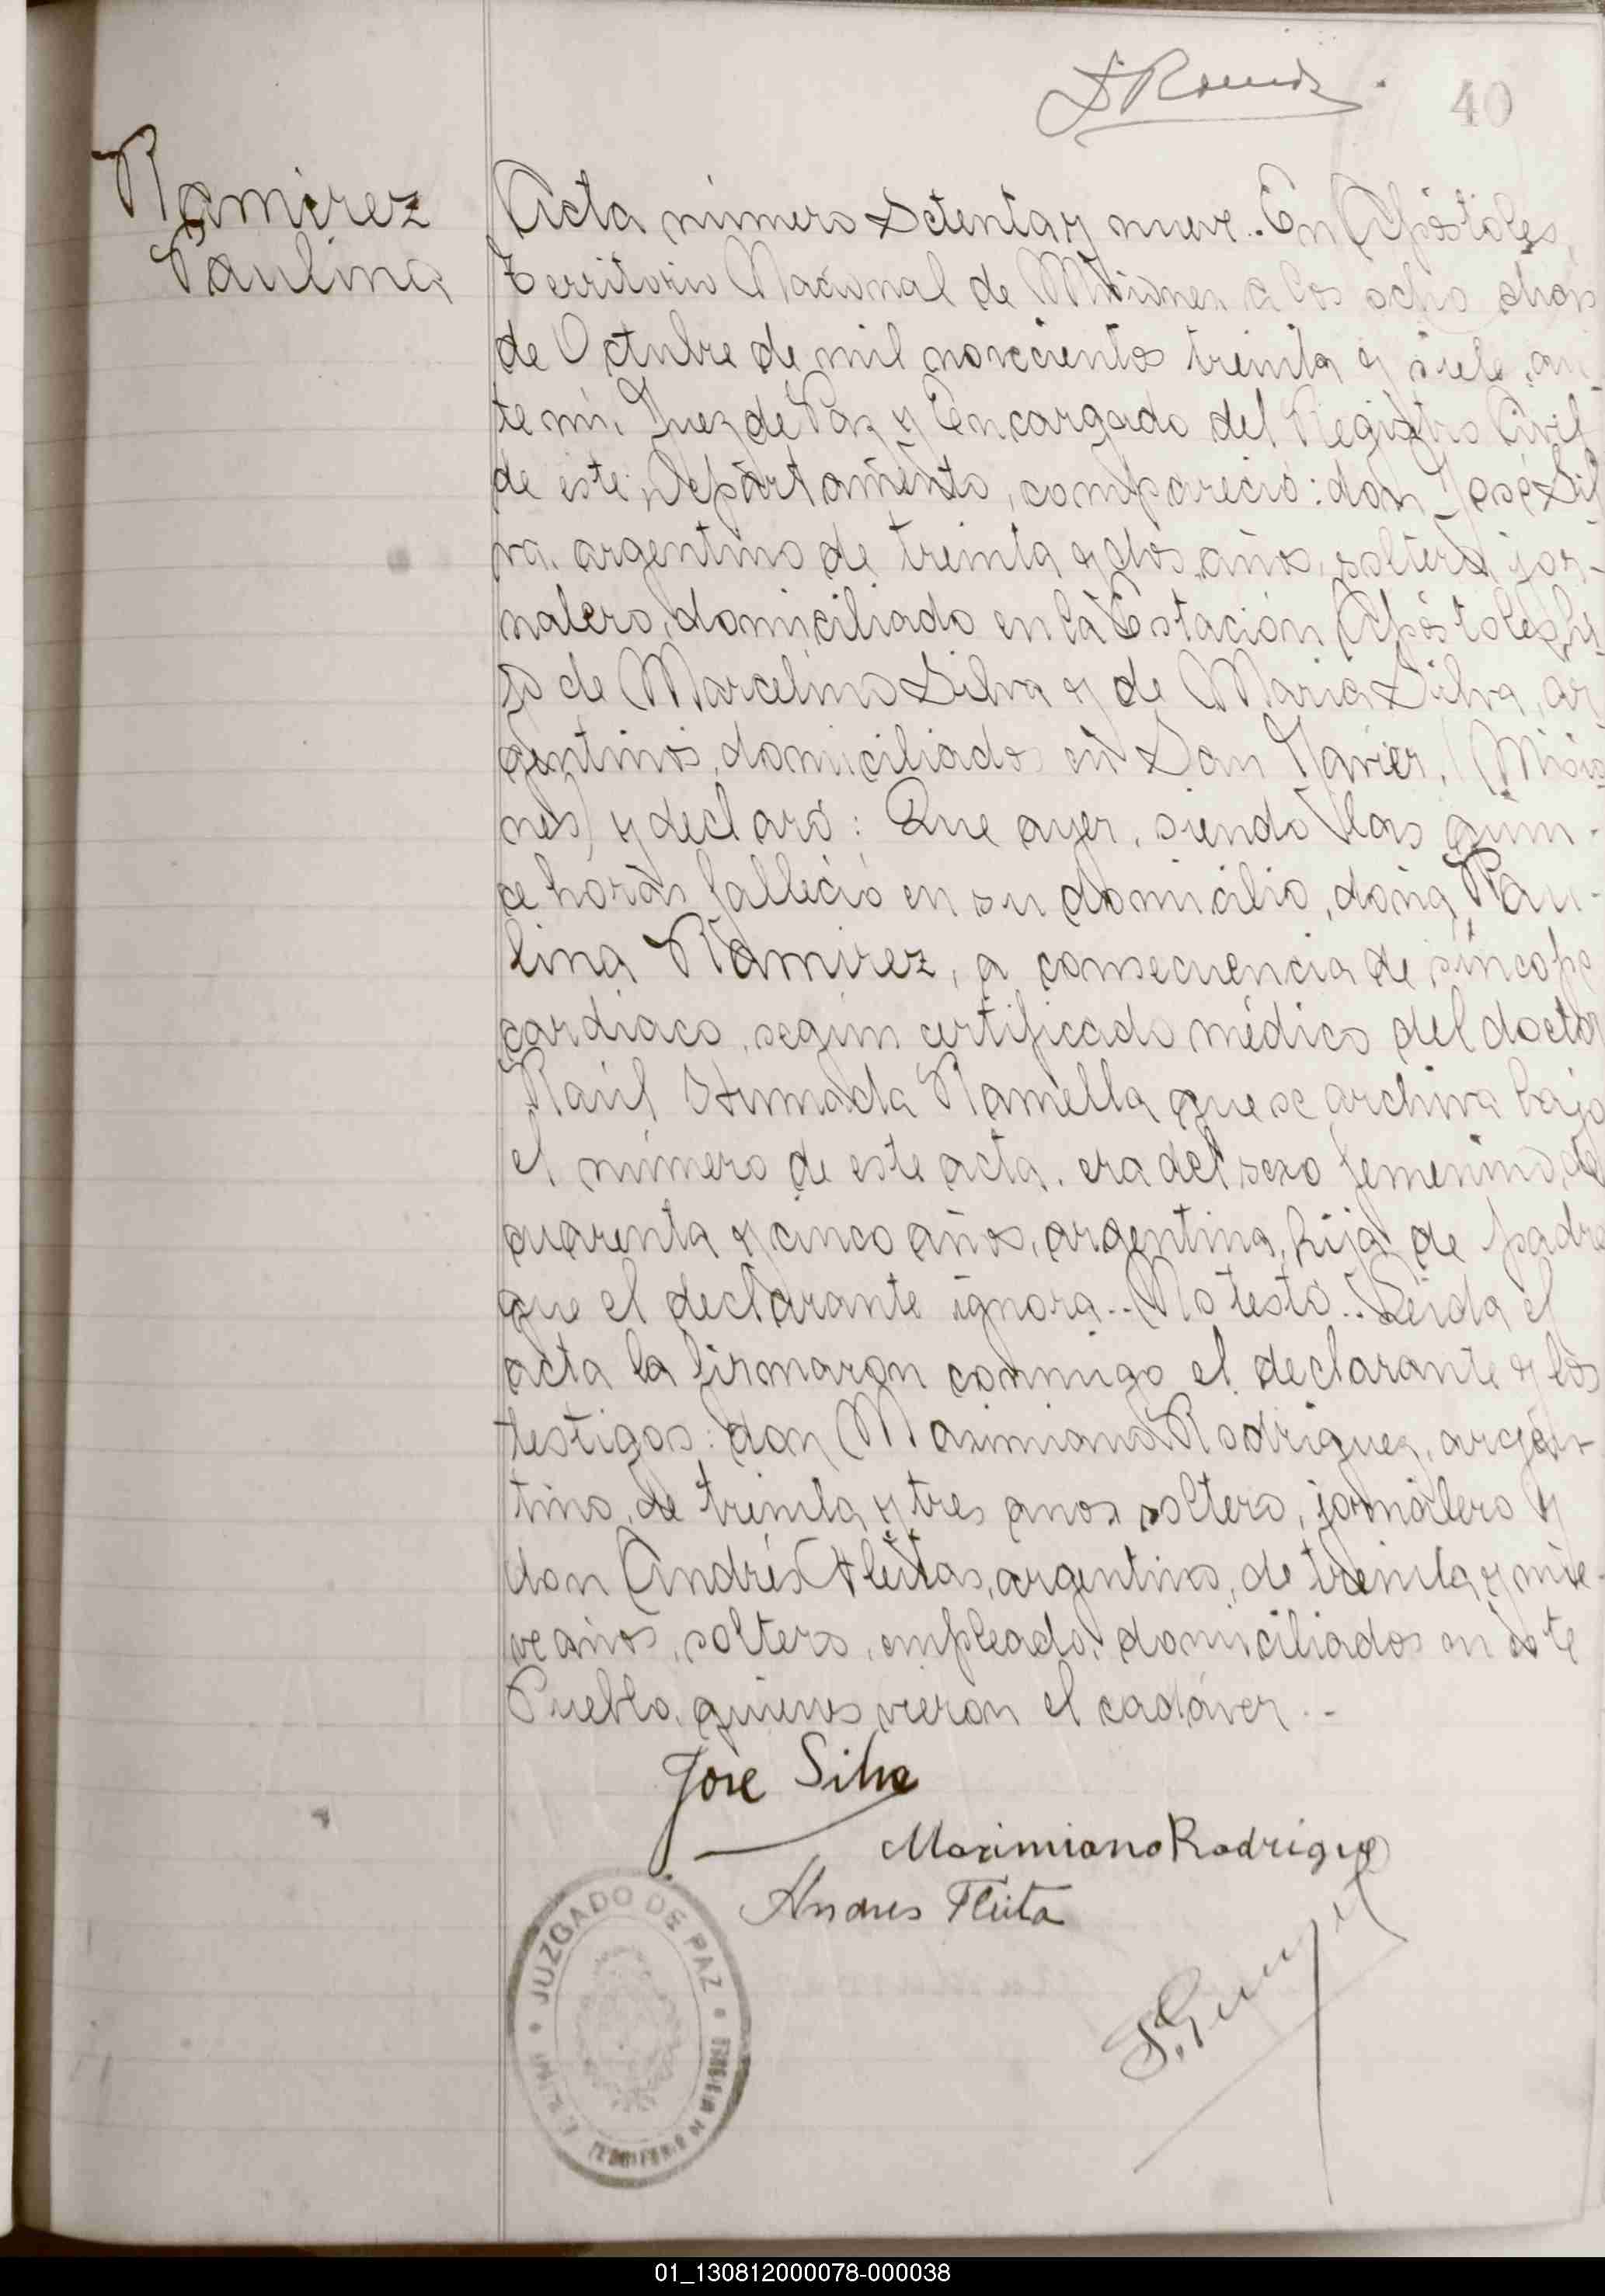 40
Ramirez
Paulina
Acta número Setenta y nueve.. En Apóstoles,
Territorio Nacional de Misiones a los ocho dias
de Octubre de mil novecientos treinta y siete, an-
te mi, Juez de Paz y Encargado del Registro Civil
de este Departamento, compareció: don José Sil
va, argentino de treinta y dos años, soltero, jor-
nalero, domiciliado en la Estación Apóstoles, hi-
jo de Marcelino Silva y de Maria Silva, ar
gentinos, domiciliados en San Javier, (Misio
nes) y declaró: Que ayer, siendo las quin-
ce horas falleció en su domicilio, doña Pau-
lina Ramirez, a consecuencia de síncope
cardiaco, según certificado médico del doctor
Raúl Ahumada Ramella que se archiva bajo
el número de este acta. era del sexo femenino, de
cuarenta y cinco años, argentina, hija de padre
que el declarante ignora.. No testó.. Leida el
acta la firmaron conmigo el declarante y los
testigos: don Maximiano Rodriguez, argen-
tino, de treinta y tres anos soltero, jornalero y
don Andrés Fleitas, argentino, de treinta y nue-
ve años, soltero, empleado, domiciliados en este
Pueblo, quienes vieron el cadáver..-
Jose Silva
Maximiano Rodrigue
Andres Fleita
JUZGADO DE PAZ
TERRITORIO DE MISIONES
01_130812000078-000038